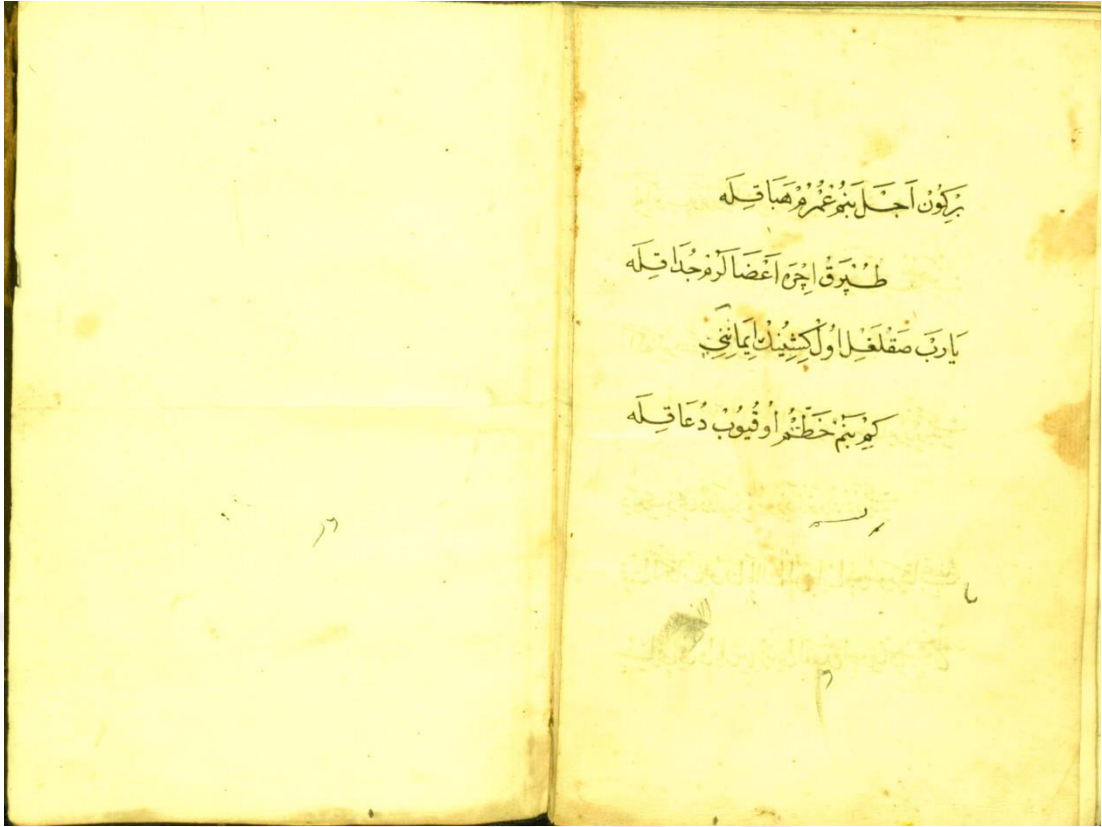 بِركُونْ اَجَلْ بَنِمْ عُمْرُمْ هَبَا قِلَه
طُپْرَقْ اِچْرَه اَعْضَالَرِمْ جُدَا قِلَه
يَارَبْ صَقْلَغِلْ اُولْ كِشِينُكْ اِيمَانِنِي
كِمْ بَنِمْ خَطِّمْ اُوقُيُوبْ دُعَا قِلَه